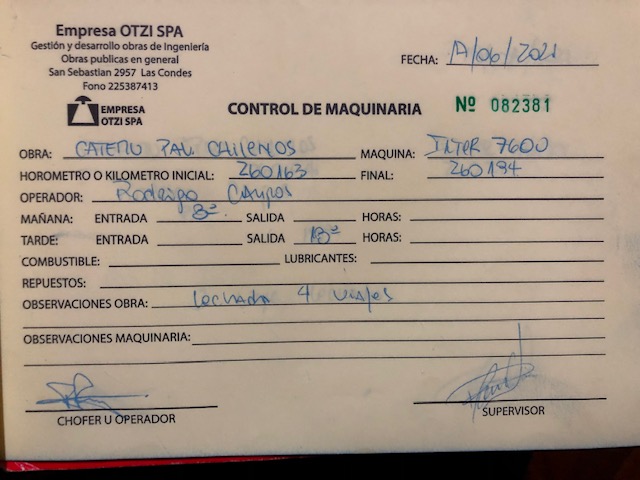 Empresa OTZI SPA
Gestión y desarrollo obras de Ingeniería
Obras publicas en general
San Sebastían 2957 Las Condes
Fono 225387413
FECHA: 17/06/2021
EMPRESA
OTZI SPA
CONTROL DE MAQUINARIA Nº 082381
OBRA: PAU CHILENOS MAQUINA: INTER 7600
HOROMETRO O KILOMETRO INICIAL: 260163 FINAL: 260194
OPERADOR: Rodrigo Campos
MAÑANA: ENTRADA 8º SALIDA HORAS:
TARDE: ENTRADA SALIDA 18º HORAS:
COMBUSTIBLE: LUBRICANTES:
REPUESTOS:
OBSERVACIONES OBRA: Lechada 4 viajes
OBSERVACIONES MAQUINARIA:
CHOFER U OPERADOR
SUPERVISOR